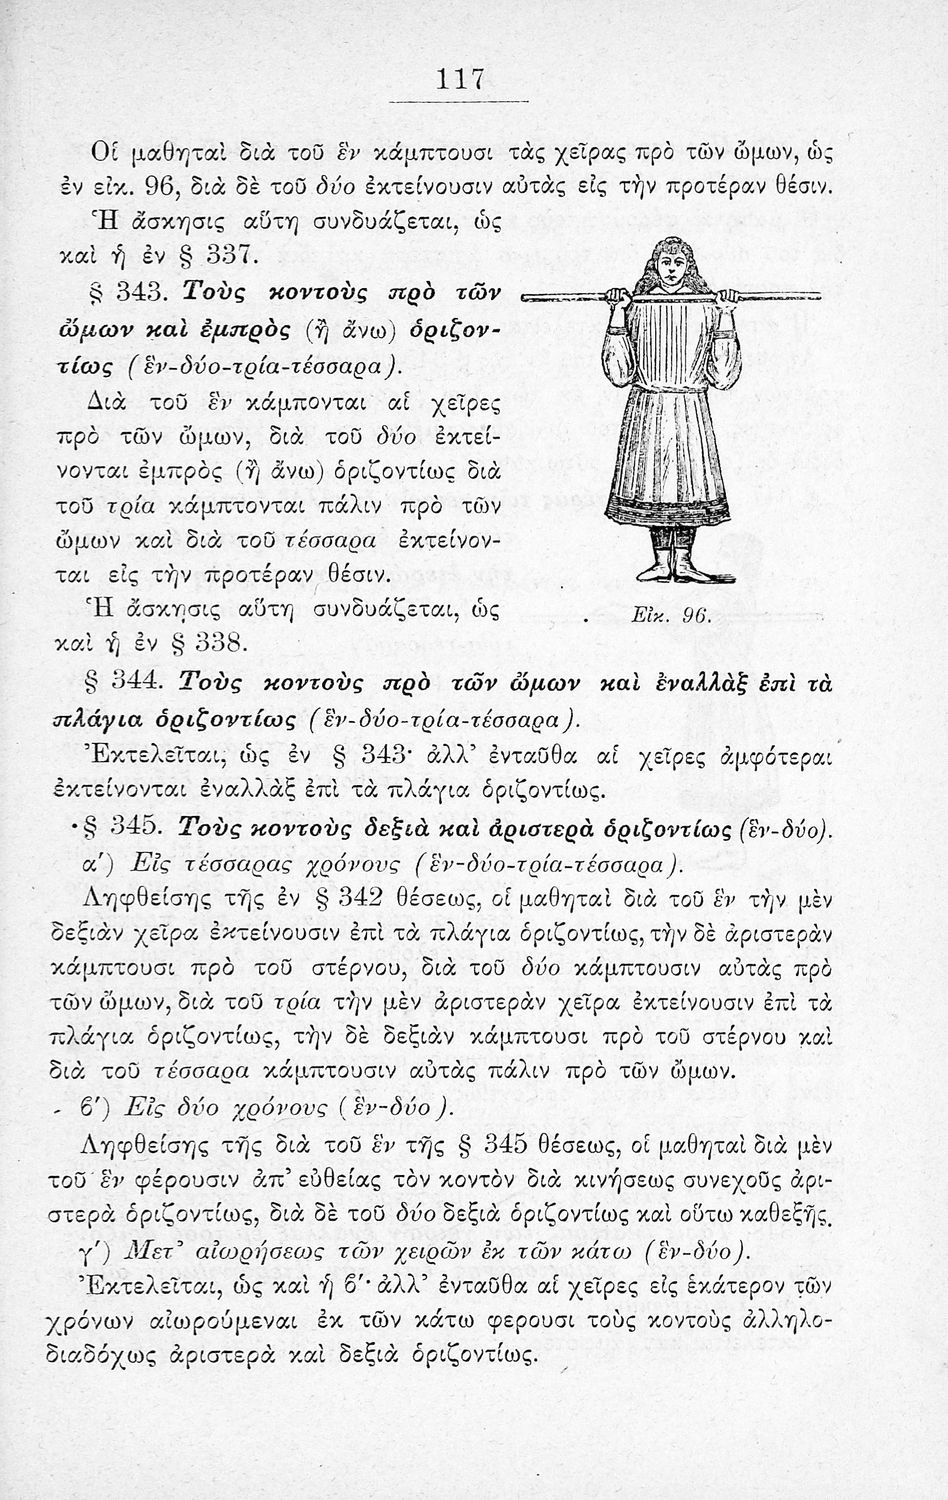 117
Οἱ μαθηταὶ διὰ τοῦ ἓν κάμπτουσι τὰς χεῖρας πρὸ τῶν ὤμων, ὡς
ἐν εἰκ. 96, διὰ δὲ τοῦ δύο ἐκτείνουσιν αὐτὰς εἰς τὴν προτέραν θέσιν.
Ἡ ἄσκησις αὕτη συνδυάζεται, ὡς
καὶ ἡ ἐν § 337.
§ 343. Τοὺς κοντοὺς πρὸ τῶν
ὤμων καὶ ἐμπρὸς (ἢ ἄνω) ὁριζον-
τίως (ἓν-δύο-τρία-τέσσαρα).
Διὰ τοῦ ἓν κάμπονται αἱ χεῖρες
πρὸ τῶν ὤμων, διὰ τοῦ δύο ἐκτεί-
νονται ἐμπρὸς (ἢ ἄνω) ὁριζοντίως διὰ
τοῦ τρία κάμπτονται πάλιν πρὸ τῶν
ὤμων καὶ διὰ τοῦ τέσσαρα ἐκτείνον-
ται εἰς τὴν προτέραν θέσιν.
Ἡ ἄσκησις αὕτη συνδυάζεται, ὡς
καὶ ἡ ἐν § 338.
Εἰκ. 96.
§ 344. Τοὺς κοντοὺς πρὸ τῶν ὤμων καὶ ἐναλλὰξ ἐπὶ τὰ
πλάγια ὁριζοντίως (ἓν-δύο-τρία-τέσσαρα).
Ἐκτελεῖται, ὡς ἐν § 343· ἀλλ’ ἐνταῦθα αἱ χεῖρες ἀμφότεραι
ἐκτείνονται ἐναλλὰξ ἐπὶ τὰ πλάγια ὁριζοντίως.
§ 345. Τοὺς κοντοὺς δεξιὰ καὶ ἀριστερὰ ὁριζοντίως (ἓν-δύο).
α′) Εἰς τέσσαρας χρόνους (ἓν-δύο-τρία-τέσσαρα).
Ληφθείσης τῆς ἐν § 342 θέσεως, οἱ μαθηταὶ διὰ τοῦ ἓν τὴν μὲν
δεξιὰν χεῖρα ἐκτείνουσιν ἐπὶ τὰ πλάγια ὁριζοντίως, τὴν δὲ ἀριστερὰν
κάμπτουσι πρὸ τοῦ στέρνου, διὰ τοῦ δύο κάμπτουσιν αὐτὰς πρὸ
τῶν ὤμων, διὰ τοῦ τρία τὴν μὲν ἀριστερὰν χεῖρα ἐκτείνουσιν ἐπὶ τὰ
πλάγια ὁριζοντίως, τὴν δὲ δεξιὰν κάμπτουσι πρὸ τοῦ στέρνου καὶ
διὰ τοῦ τέσσαρα κάμπτουσιν αὐτὰς πάλιν πρὸ τῶν ὤμων.
β′) Εἰς δύο χρόνους (ἓν-δύο).
Ληφθείσης τῆς διὰ τοῦ ἓν τῆς § 345 θέσεως, οἱ μαθηταὶ διὰ μὲν
τοῦ ἓν φέρουσιν ἀπ’ εὐθείας τὸν κοντὸν διὰ κινήσεως συνεχοῦς ἀρι-
στερὰ ὁριζοντίως, διὰ δὲ τοῦ δύο δεξιὰ ὁριζοντίως καὶ οὕτω καθεξῆς.
γ′) Μετ’ αἰωρήσεως τῶν χειρῶν ἐκ τῶν κάτω (ἓν-δύο).
Ἐκτελεῖται, ὡς καὶ ἡ β′· ἀλλ’ ἐνταῦθα αἱ χεῖρες εἰς ἑκάτερον τῶν
χρόνων αἰωρούμεναι ἐκ τῶν κάτω φερουσι τοὺς κοντοὺς ἀλληλο-
διαδόχως ἀριστερὰ καὶ δεξιὰ ὁριζοντίως.